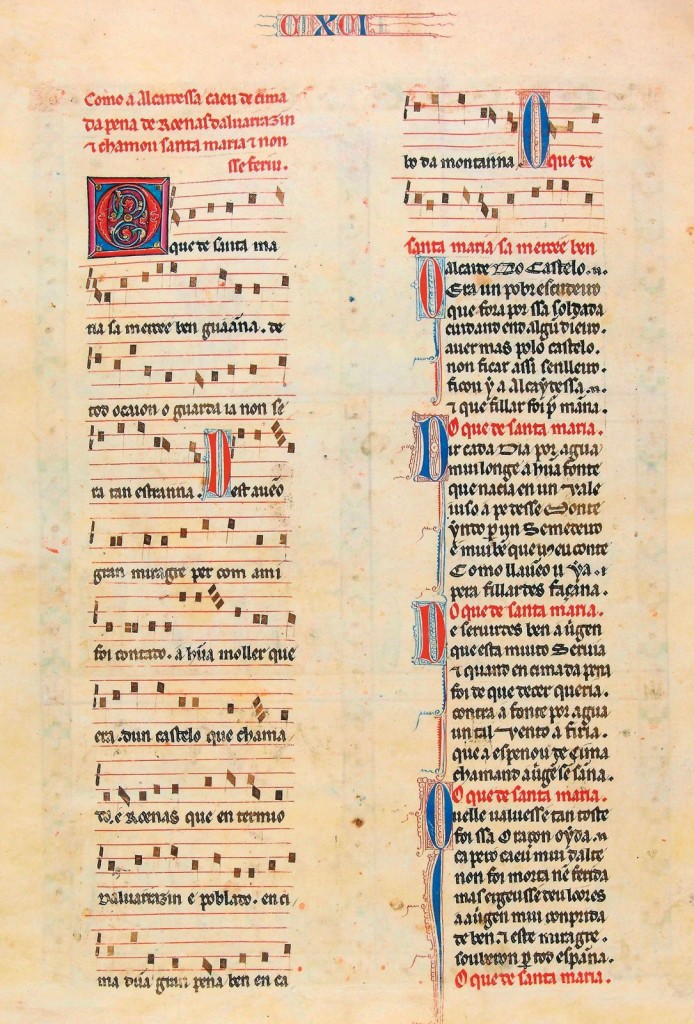 Como a Alcaydessa caeu de cima
da pena de Roenas daluarrazin
⁊ chamou santa maria ⁊ non
sse feriu.
O que de santa ma
ria sa merçee ben guaãna. de
tod ocaion o guarda ia non se
ra tan estranna. Dest aueo
gran miragre per com a mi
foi contado. a hũa moller que
era. dun castelo que chama
do. e Roenas que en termio
daluarrazin e poblado. en ci
ma dũa gran pena ben en ca
bo da montanna. O que de
santa maria sa merçee ben
O alcaide do Castelo.
Era un pobr escudeiro
que fora por ssa soldada
cuidand end algũ dieiro.
auer mas polo castelo.
non ficar assi senlleiro.
ficou y a Alcaydessa.
⁊ que fillar foi p mãna.
O que de santa maria.
Dir cada dia por agua
mui longe a hũa fonte
que nacia en un vale
iuso a pe desse Monte
ỹndo p ỹn Semedeiro
e mui bẽ que u meu conte
Como llaueo u ya.
pera fillar des façina.
O que de santa maria.
De seruir tes ben a uirgen
que esta muito Seruia
⁊ quand en cima da pena
foi de que decer queria.
contra a fonte por agua
un tal vento a firia.
que a espenou de Cima
chamand a uirgẽ se sana.
O que de santa maria.
Quelle ualuesse tan toste
foi ssa Oraçon oyda.
ca pero caeu mui dalte
non foi morta nẽ ferida
mas ergeusse deu loores
a a uirgen mui conprida
de ben. ⁊ este miragre.
souberon p tod españa.
O que de santa maria.